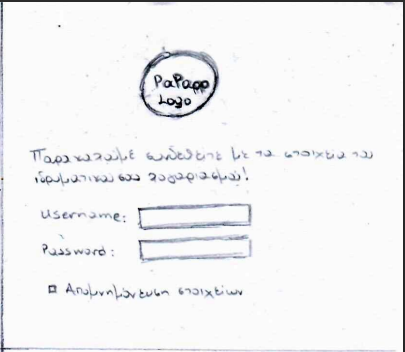 PaPapp
Logo
Παρακαλούμε συνδεθείτε με τα στοιχεία του
ιδρυματικού σου λογαριασμού!
Username:
Password:
Απομνημόνευση στοιχείων